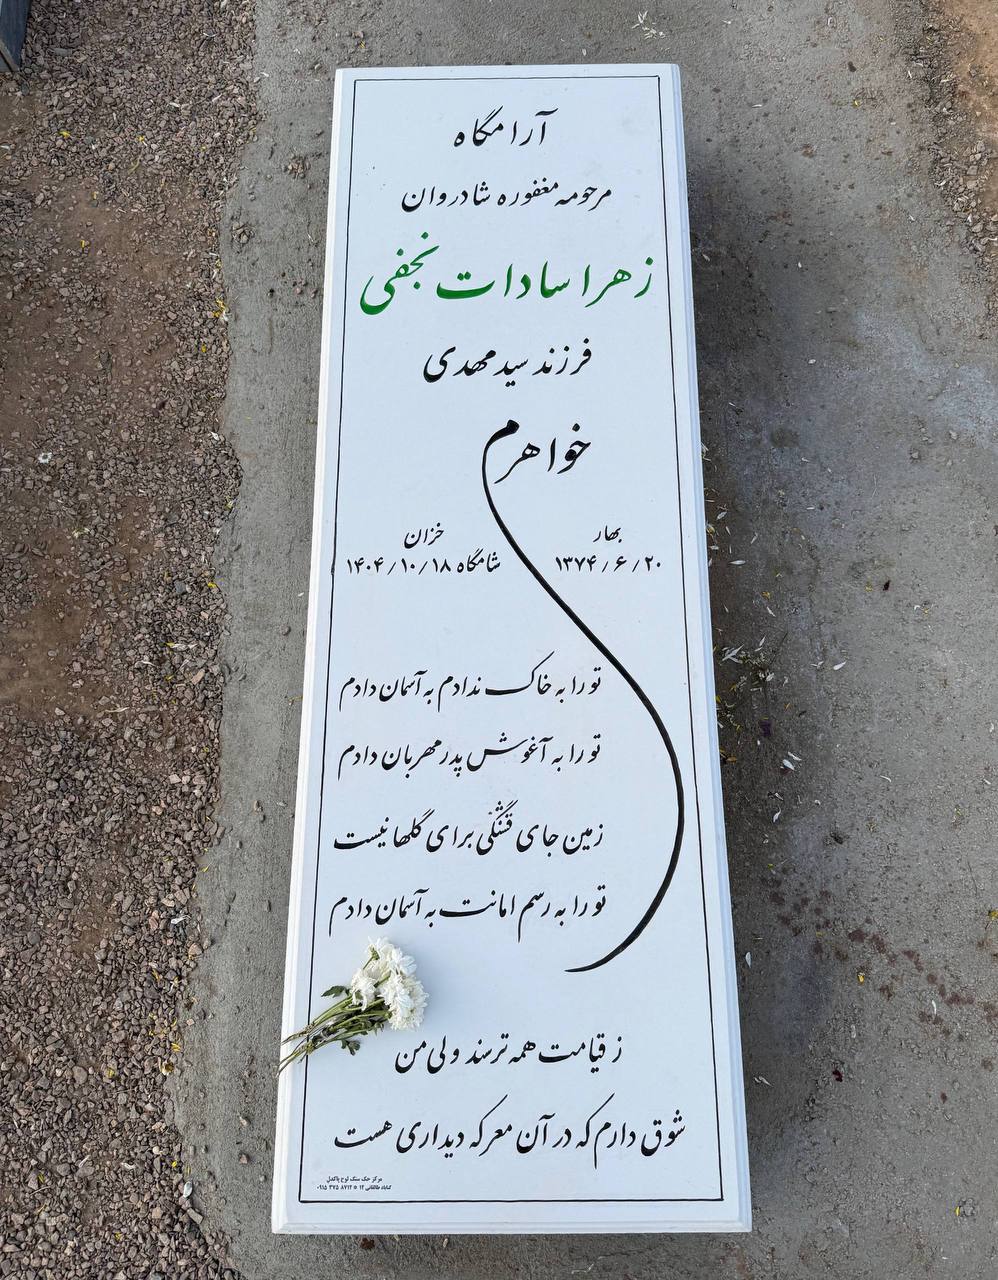 آرامگاه
مرحومه مغفوره شادروان
زهرا سادات نجفی
فرزند سید مهدی
خواهرم
بهار
۱۳۷۴/۶/۲۰
خزان
شامگاه ۱۴۰۴/۱۰/۱۸
تو را به خاک ندادم به آسمان دادم
تو را به آغوش پدر مهربان دادم
زمین جای قشنگی برای گلها نیست
تو را به رسم امانت به آسمان دادم
ز قیامت همه ترسند ولی من
شوق دارم که در آن معرکه دیداری هست
مرکز حک سنگ لوح پاکدل
گناباد طالقانی ۱۲ * ۸۷۱۲ ۳۷۵ ۰۹۱۵